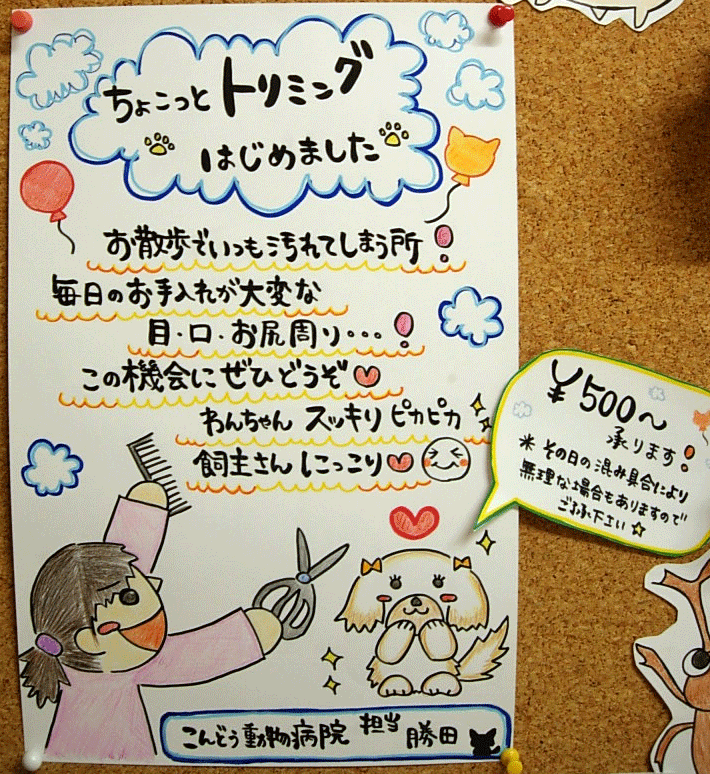 ちょこっとトリミング
はじめました
お散歩でいつも汚れてしまう所!
毎日のお手入れが大変な
目・口・お尻周り・・・!
この機会にぜひどうぞ♡
わんちゃん スッキリ ピカピカ
飼主さん にっこり♡
¥500〜
承ります!
※その日の混み具合により
無理な場合もありますので
ご了承下さい☆
こんどう動物病院 担当 勝田